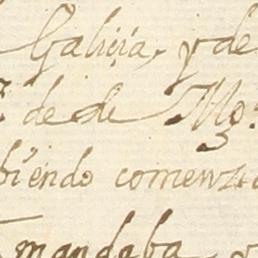 Galicia, y de
de di Mo
biendo comenza
mandaba y